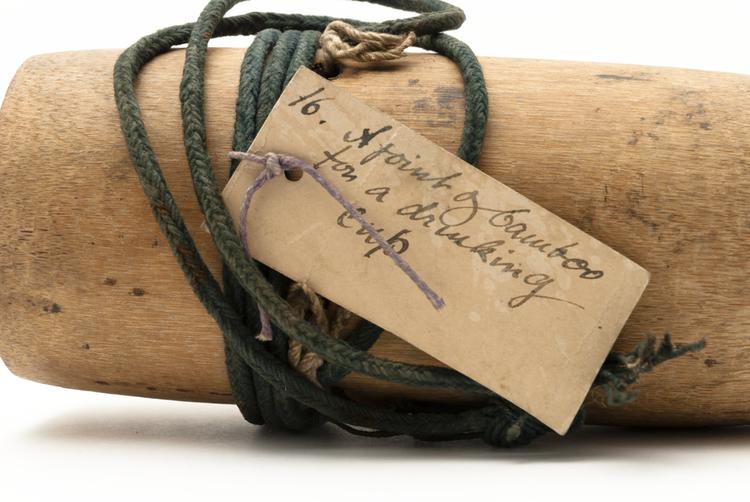 16. A joint of bamboo
for a drinking
cup